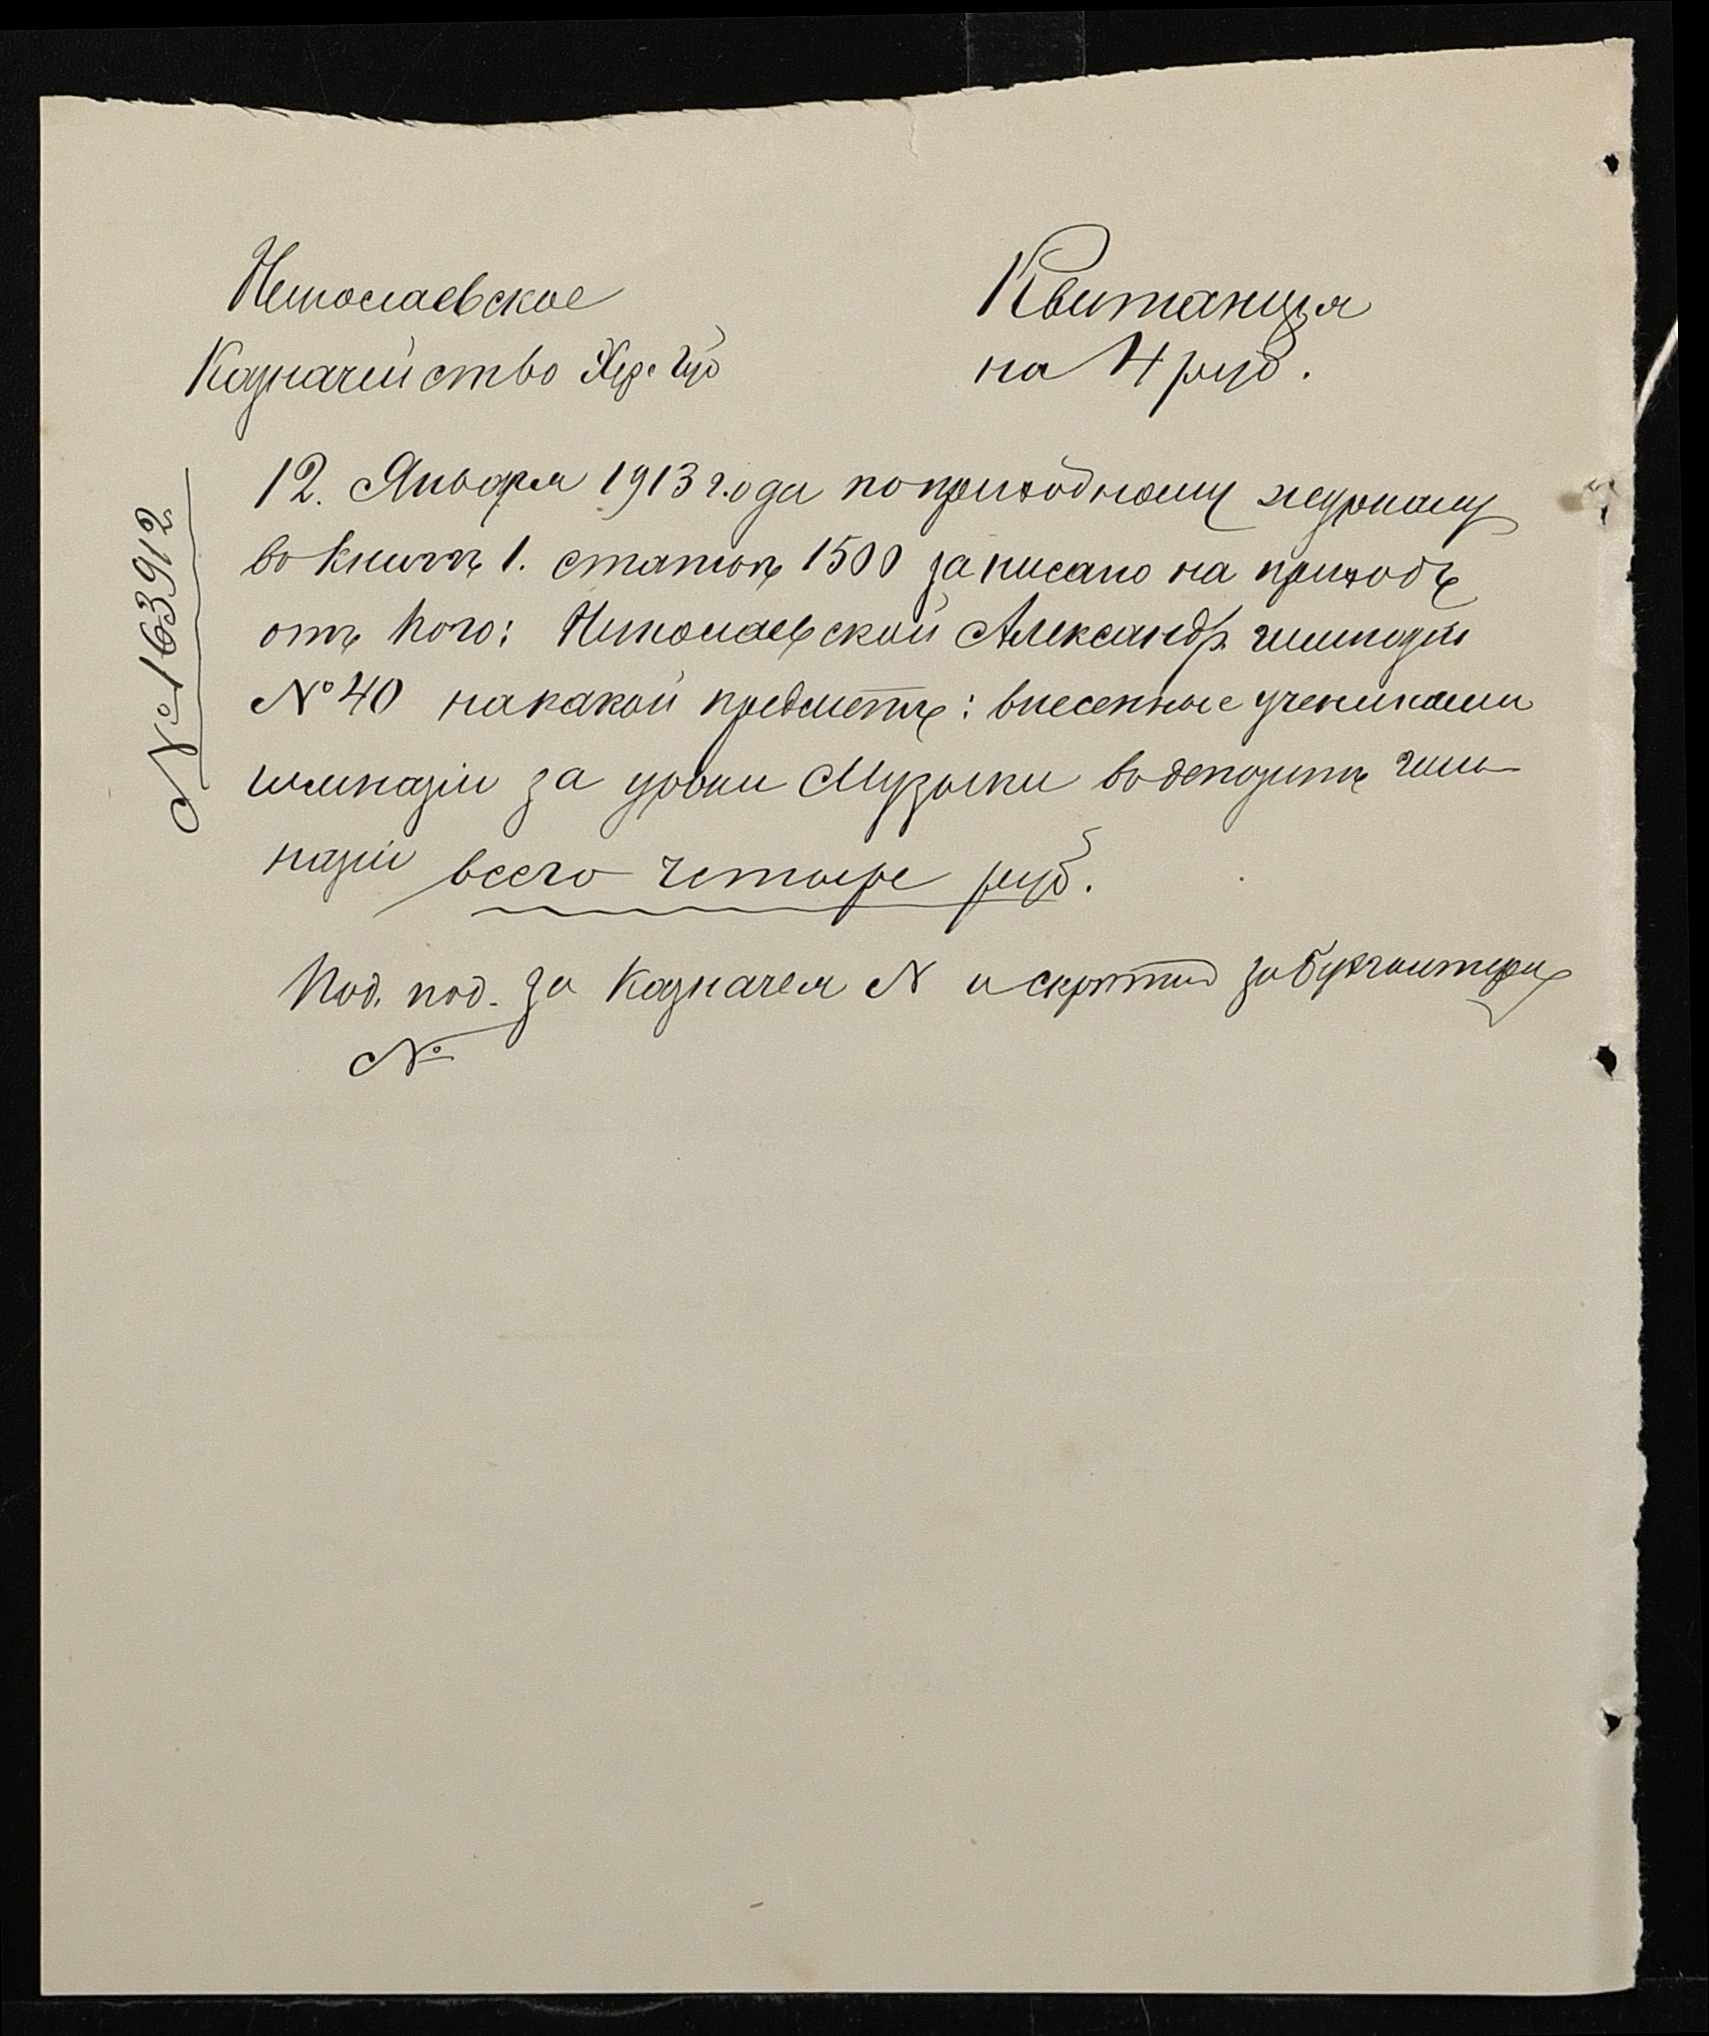 Николаевское
Казначейство Хер. Губ
Квитанция
на 4 руб.
№ 163912
12. Января 1913 года по приходному журналу
во книгъ 1. статьѣ 1500 записано на приходъ
отъ кого: Николаевской Александр. гимназіи
№ 40 на какой предметъ: внесенные учениками
гимназіи за уроки Музыки во депозитъ гим-
назіи всего четыре руб.
Под. под. За Казначея N и скрѣпилъ за бухгалтера
№